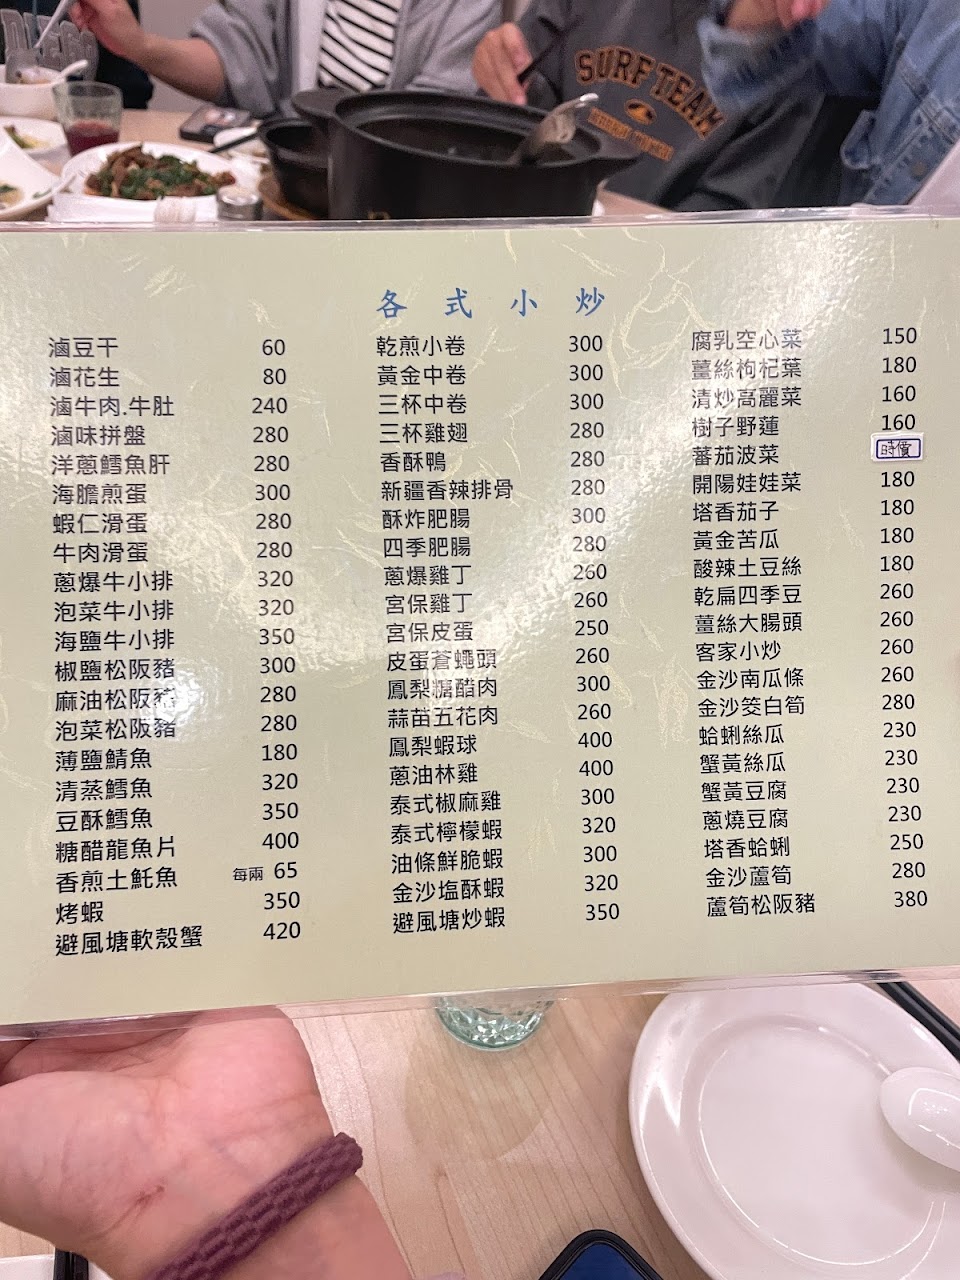 DIEGO
SURF TEAM
各式小炒
滷豆干 60
滷花生 80
滷牛肉.牛肚 240
滷味拼盤 280
洋蔥鱈魚肝 280
海膽煎蛋 300
蝦仁滑蛋 280
牛肉滑蛋 280
蔥爆牛小排 320
泡菜牛小排 320
海鹽牛小排 350
椒鹽松阪豬 300
麻油松阪豬 280
泡菜松阪豬 280
薄鹽鯖魚 180
清蒸鱈魚 320
豆酥鱈魚 350
糖醋龍魚片 400
香煎土魠魚 每兩 65
烤蝦 350
避風塘軟殼蟹 420
乾煎小卷 300
黃金中卷 300
三杯中卷 300
三杯雞翅 280
香酥鴨 280
新疆香辣排骨 280
酥炸肥腸 300
四季肥腸 280
蔥爆雞丁 260
宮保雞丁 260
宮保皮蛋 250
皮蛋蒼蠅頭 260
鳳梨糖醋肉 300
蒜苗五花肉 260
鳳梨蝦球 400
蔥油林雞 400
泰式椒麻雞 300
泰式檸檬蝦 320
油條鮮脆蝦 300
金沙塩酥蝦 320
避風塘炒蝦 350
腐乳空心菜 150
薑絲枸杞葉 180
清炒高麗菜 160
樹子野蓮 160
蕃茄波菜 時價
開陽娃娃菜 180
塔香茄子 180
黃金苦瓜 180
酸辣土豆絲 180
乾扁四季豆 260
薑絲大腸頭 260
客家小炒 260
金沙南瓜條 260
金沙筊白筍 280
蛤蜊絲瓜 230
蟹黃絲瓜 230
蟹黃豆腐 230
蔥燒豆腐 230
塔香蛤蜊 250
金沙蘆筍 280
蘆筍松阪豬 380